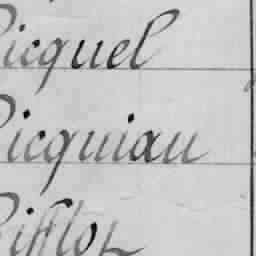 Picquel
Picquiau
Pifflot